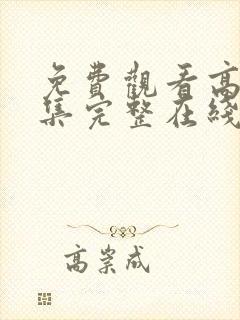 免費觀看高
集完整在綫
高岽成